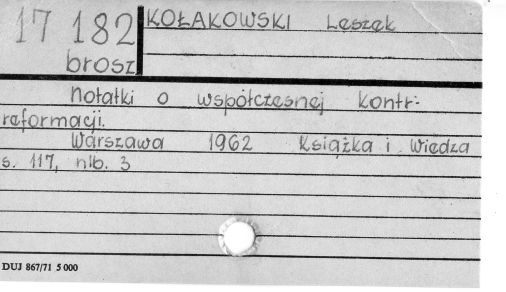 17 182
brosz
KOŁAKOWSKI Leszek
Notatki o współczesnej kontr-
reformacji.
Warszawa 1962 Książka i Wiedza
s. 117, nlb. 3
DUJ 867/71 5 000